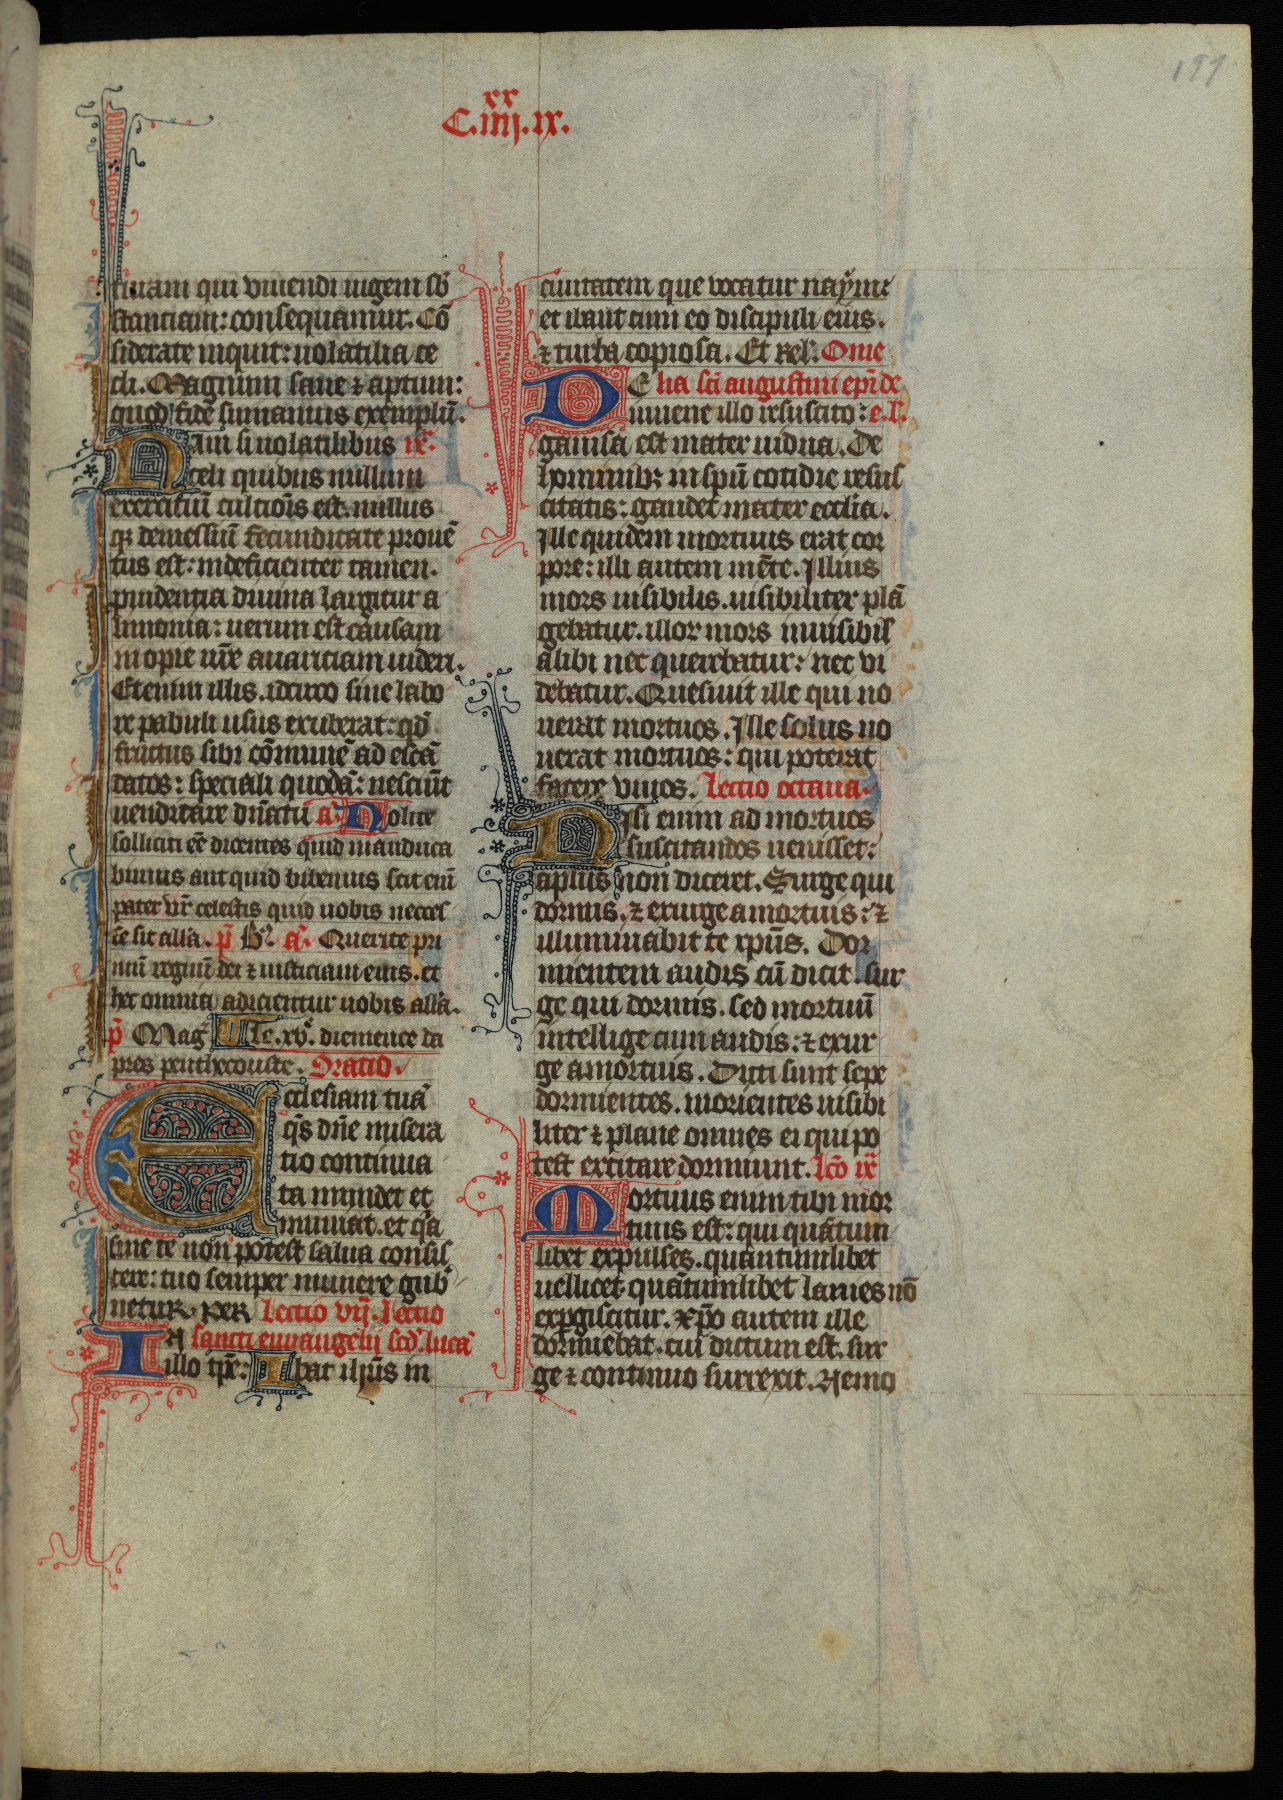 199
xx
C.iiij.ix.
tiuam qui viuendi iugem sb̄
stanciam: consequamur. Cō
siderate inquit: uolatilia ce
cli. Magnum sane ⁊ aptum:
quod fide sumamus exemplū.
Nam si uolatilibus ix.
celi quibus nullum
exercitiū cultiōis est. nullus
qꝫ de messiū fecunditate prouē
tus est: indeficienter tamen.
prudentia diuina largitur a
limonia: uerum est causam
inopie nr̄e auariciam uideri.
Etenim illis. idcirco sine labo
re pabuli usus exuberat: qd̄
fructus sibi cōmunē ad escā
datos: speciali quodā: nesciūt
uendicare dn̄atū a. Nolite
solliciti eē dicentes quid manduca
bimus aut quid bibemus scit enī
pater vr̄ celestis quid uobis neces
se sit alla. p̄ B᷎. a. Querite pri
mū regnū dei ⁊ iusticiam eius. et
hec omnia adicientur uobis alla.
p̄ Mag᷎ Ite. xv. dience da
pres penthecouste. Oratio.
Ecclesiam tuā
qs̄ dn̄e misera
tio continua
ta mundet et
muniat. et q̄a
sine te non potest salua consis
tere: tuo semper munere gub
netur. PER Lectio vij. lectio
IN sancti euuangelij scd᷎. lucā
illo tp̄e: Ibat ihs̄ in
ciuitatem que vocatur naym:
et ibant cum eo discipuli eius.
⁊ turba copiosa. Et rel᷎. Ome
DE lia sc̄i augustini ep̄i de
iuuene illo resuscito: e. l᷎.
gauisa est mater uidua. De
hominibꝫ in sp̄u cotidie resus
citatis: gaudet mater ecclia.
Ille quidem mortuus erat cor
pore: illi autem mēte. Illius
mors uisibilis. uisibiliter plā
gebatur. illor mors inuisibil᷎
alibi nec querebatur: nec vi
debatur. Quesiuit ille qui no
uerat mortuos. Ille solus no
uerat mortuos: qui poterat
facere viuos. lectio octaua.
Nisi enim ad mortuos
suscitandos uenisset:
aplus non diceret. Surge qui
dormis. ⁊ exurge a mortuis: ⁊
illuminabit te xp̄us. Dor
mientem audis cū dicit sur
ge qui dormis. sed mortuū
intellige cum audis: ⁊ exur
ge a mortuis. Dicti sunt sepe
dormientes. morientes uisibi
liter ⁊ plane omnes ei qui po
test excitare dormiunt. lc̄o ix
Mortuus enim tibi mor
tuus est: qui quātum
libet expulses. quantumlibet
uellicet quātumlibet lanies nō
exp̱giscitur. Xp̄o autem ille
dormiebat. cui dictum est. sur
ge ⁊ continuo surrexit. Nemo